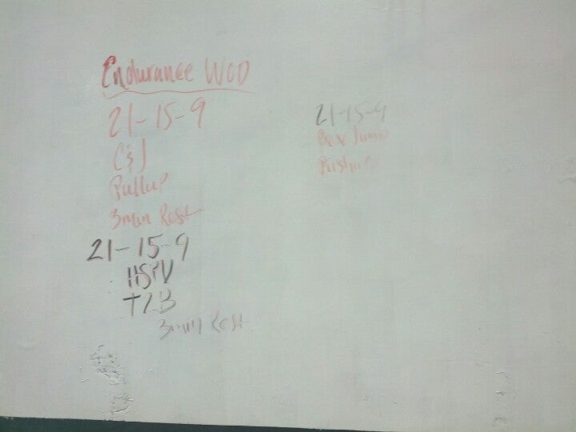 Endurance WOD
21-15-9
C&J
Pullup
3min Rest
21-15-9
HSPU
T2B
3min Rest
21-15-9
Box Jump